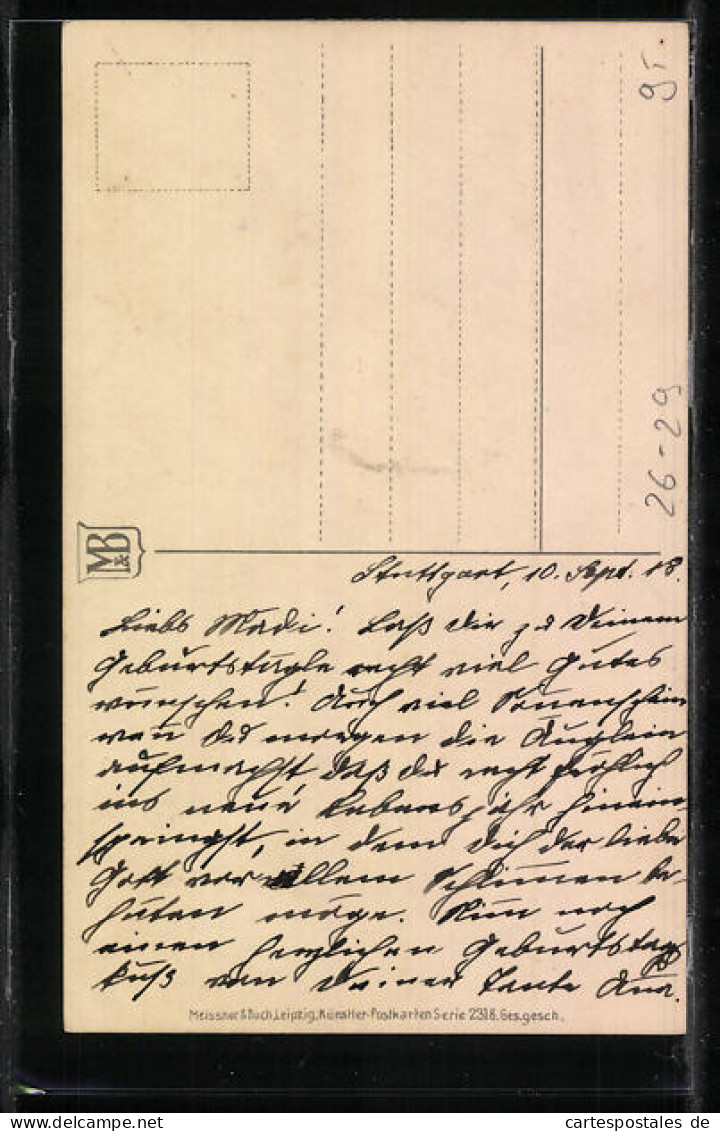 Stuttgart, 10. Sept. 18.
Liebs Madi! Laß dir zu Deinem
Geburtstägle recht viel Gutes
wünschen! Auch viel Sonnenschein
wen Du morgen die Äuglein
aufmachst daß du recht fröhlich
ins neue Lebensjahr hinein
springst, in dem Dich der liebe
Gott vor allem Schlimmen be-
hüten möge. Nun noch
einen herzlichen Geburtstags
kuß von Deiner Tante
M&B
Meissner & Buch, Leipzig, Künstler-Postkarten Serie 2318. Ges. gesch.
26-29
cartespostales de